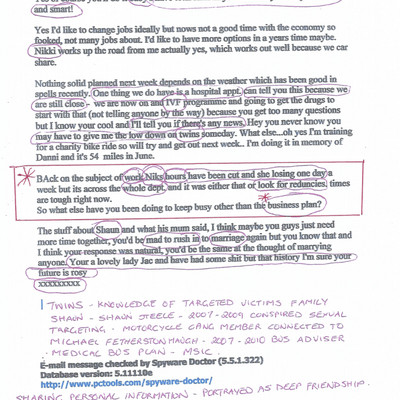 and smart!
Yes I'd like to change jobs ideally but nows not a good time with the economy so
fooked, not many jobs about. I'd like to have more options in a years time maybe.
Nikki works up the road from me actually yes, which works out well because we car
share.
Nothing solid planned next week depends on the weather which has been good in
spells recently. One thing we do have is a hospital appt. can tell you this because we
are still close - we are now on and IVF programme and going to get the drugs to
start with that (not telling anyone by the way) because you get too many questions
but I know your cool and I'll tell you if there's any news. Hey you never know you
may have to give me the low down on twins someday. What else...oh yes I'm training
for a charity bike ride so will try and get out next week.. I'm doing it in memory of
Danni and it's 54 miles in June.
BAck on the subject of work Niks hours have been cut and she losing one day a
week but its across the whole dept, and it was either that or look for reduncies, times
are tough right now.
So what else have you been doing to keep busy other than the business plan?
The stuff about Shaun and what his mum said, I think maybe you guys just need
more time together, you'd be mad to rush in to marriage again but you know that and
I think your response was natural, you'd be the same at the thought of marrying
anyone. Your a lovely lady Jac and have had some shit but that history I'm sure your
future is rosy
xxxxxxxxx
TWINS - KNOWLEDGE OF TARGETED VICTIMS FAMILY
SHAUN - SHAUN STEELE - 2007-2009 CONSPIRED SEXUAL
TARGETING. MOTORCYCLE GANG MEMBER CONNECTED TO
MICHAEL FETHERSTONHAUGH - 2007-2010 BUS ADVISER
- MEDICAL BUS PLAN - MSIC.
E-mail message checked by Spyware Doctor (5.5.1.322)
Database version: 5.11110e
http://www.pctools.com/spyware-doctor/
SHARING PERSONAL INFORMATION - PORTRAYED AS DEEP FRIENDSHIP.